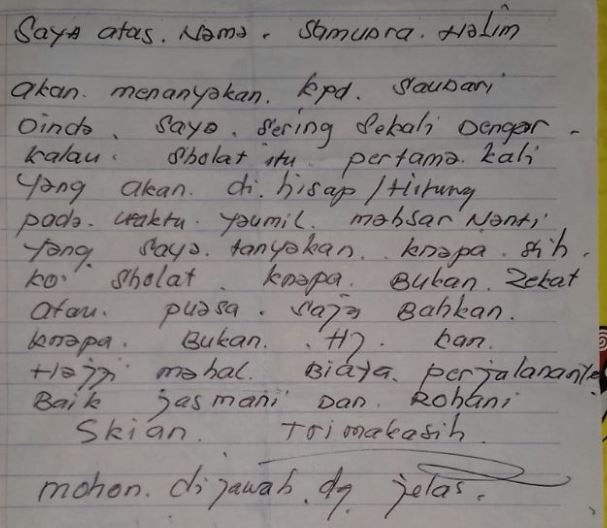 Saya atas. Nama. Samudra. Halim
akan. menanyakan. kpd. Saudari
Dinda. Saya. Sering Sekali Dengar.
kalau. Sholat itu. pertama. kali
yang akan. di. hisap / Hitung
pada. waktu. yaumil. mahsar Nanti
yang saya. tanyakan. knapa. sih.
ko. Sholat. knapa. Bukan. Zekat
atau. puasa. saja Bahkan.
knapa. Bukan. Hj. kan.
Hajji mahal. Biaya. perjalanannya
Baik jasmani Dan. Rohani
Skian. Trimakasih.
mohon. di jawab. dg. jelas.